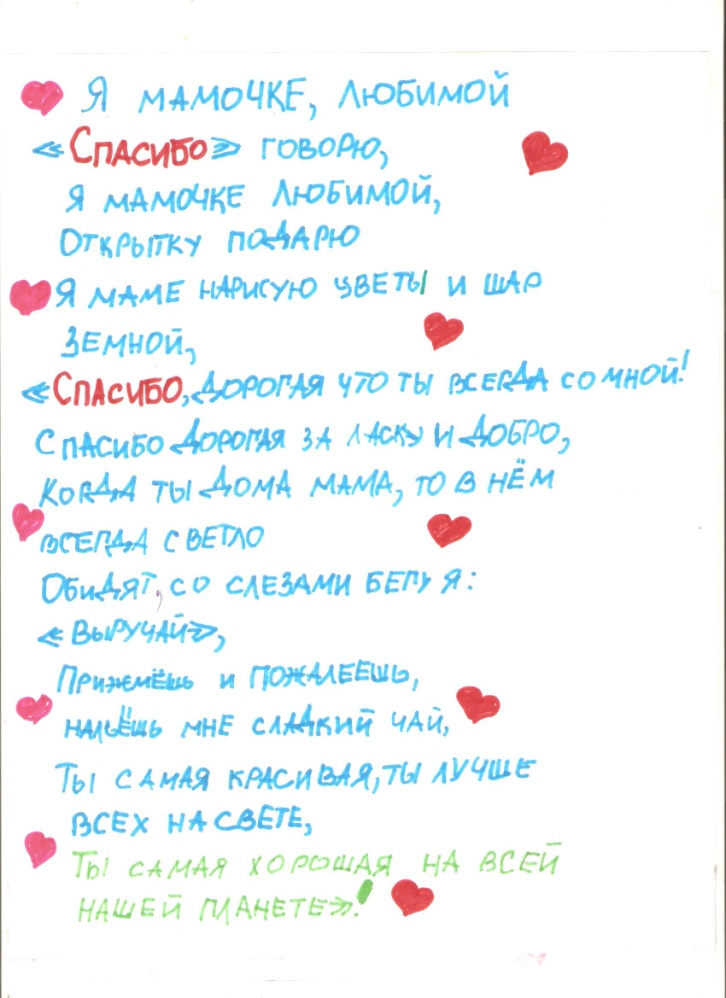 Я МАМОЧКЕ, ЛЮБИМОЙ
«СПАСИБО» ГОВОРЮ,
Я МАМОЧКЕ ЛЮБИМОЙ,
ОТКРЫТКУ ПОДАРЮ
Я МАМЕ НАРИСУЮ ЦВЕТЫ И ШАР
ЗЕМНОЙ,
«СПАСИБО, ДОРОГАЯ ЧТО ТЫ ВСЕГДА СО МНОЙ!
СПАСИБО ДОРОГАЯ ЗА ЛАСКУ И ДОБРО,
КОГДА ТЫ ДОМА МАМА, ТО В НЁМ
ВСЕГДА СВЕТЛО
ОБИДЯТ, СО СЛЕЗАМИ БЕГУ Я:
«ВЫРУЧАЙ»,
ПРИЖМЁШЬ И ПОЖАЛЕЕШЬ,
НАЛЬЁШЬ МНЕ СЛАДКИЙ ЧАЙ,
ТЫ САМАЯ КРАСИВАЯ, ТЫ ЛУЧШЕ
ВСЕХ НА СВЕТЕ,
ТЫ САМАЯ ХОРОШАЯ НА ВСЕЙ
НАШЕЙ ПЛАНЕТЕ»!